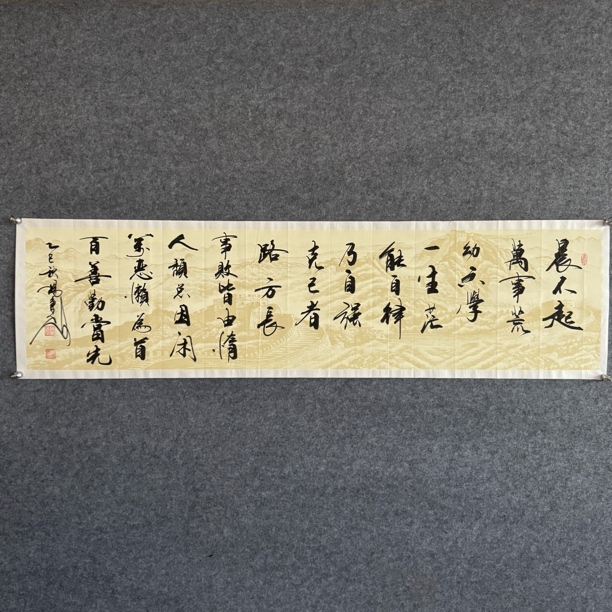 晨不起
萬事荒
幼不學
一生茫
能自律
乃自強
克己者
路方長
事敗皆由惰
人頹總因閑
萬惡懶為首
百善勤當先
乙巳秋